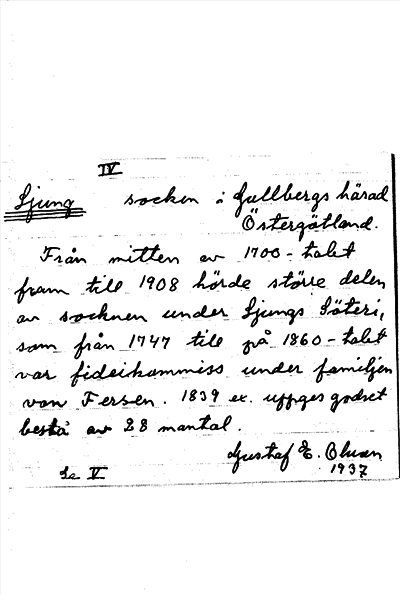 IV
Ljung socken i Gullbergs härad
Östergötland.
Från mitten av 1700-talet
fram till 1908 hörde större delen
av socknen under Ljungs Säteri,
som från 1747 till på 1860-talet
var fideikommiss under familjen
von Fersen. 1839 ex. uppges godset
bestå av 28 mantal.
Gustaf E. Olsson
1937
Se V